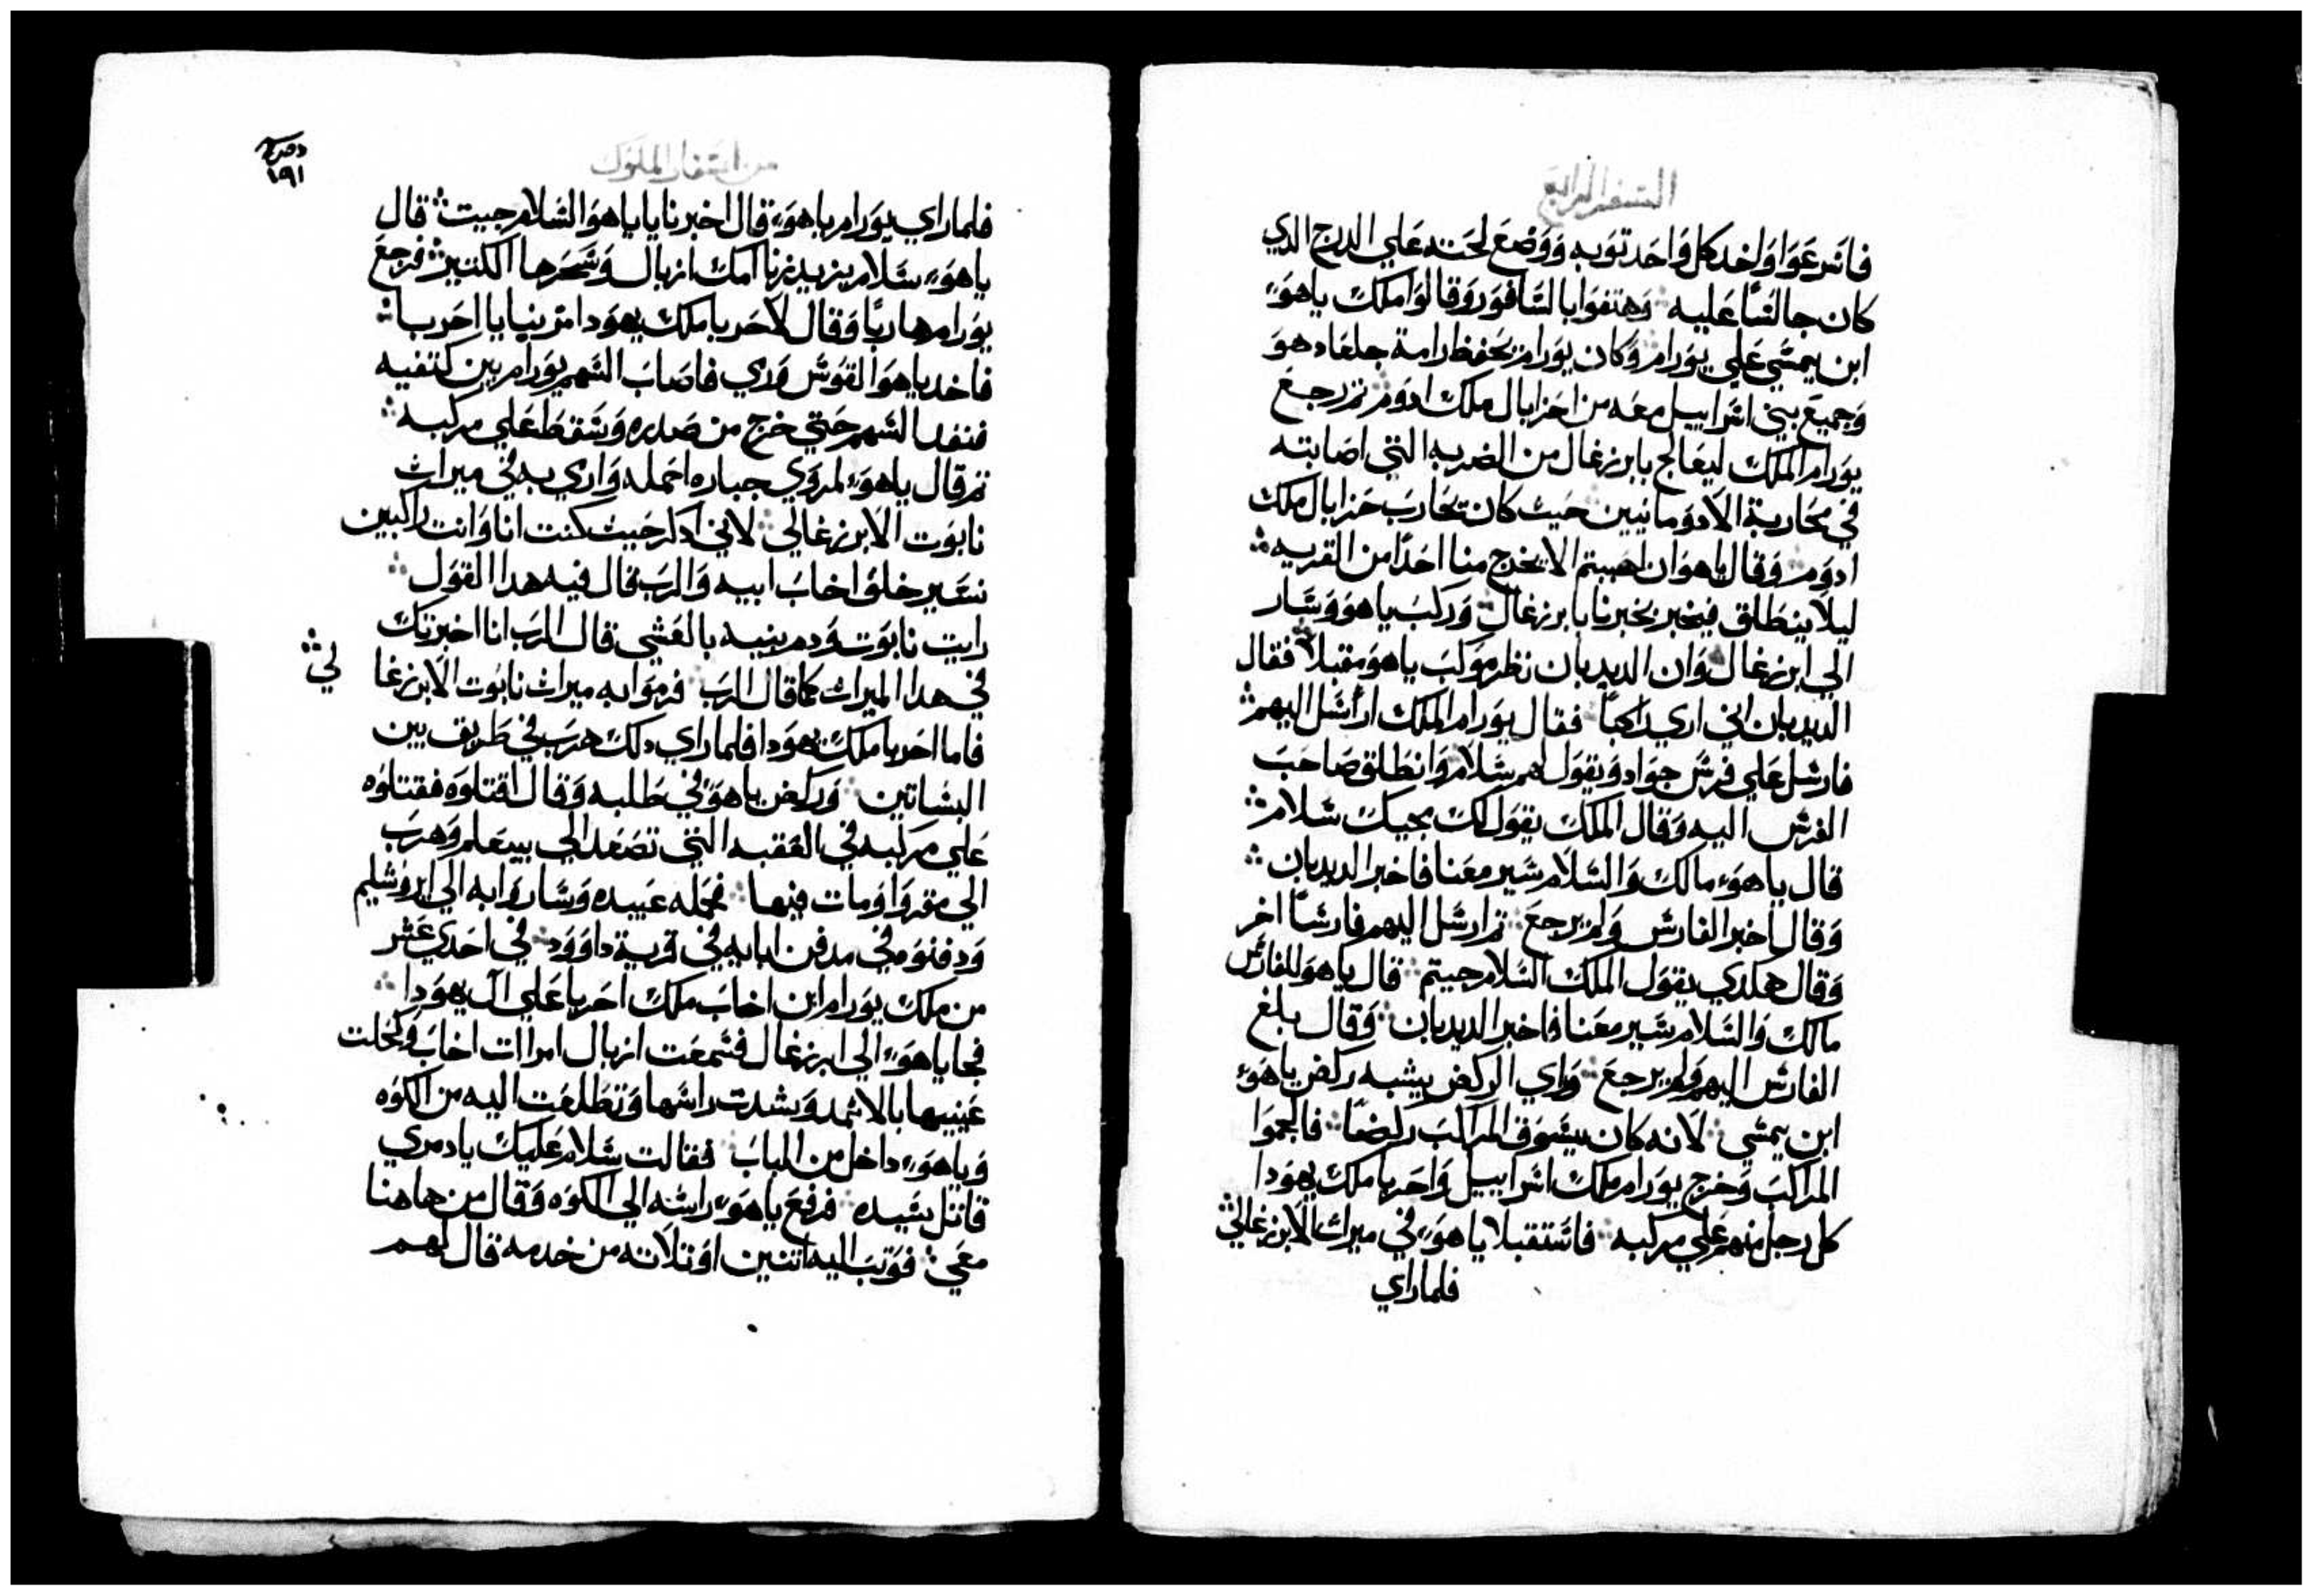 السفر الرابع
فاسرعوا واخد كل واحد توبه ووضع لحته علي الدرج الدي
كان جالسًا عليه وهتفوا بالسافور وقالوا ملك ياهوء
ابن يمشي علي يورام وكان يورام يحفظ رامة جلعاد هو
وجميع بني اسراييل معه من احزابال ملك ادوم ثم رجع
يورام الملك ليعالج بابرزغال من الضربه التي اصابته
في محاربة الادومانيين حيث كان تحارب حزابال ملك
ادوم وقال ياهو ان احببتم الا يخرج منا احدًا من القريه
ليلا ينطلق فيخبر بخبرنا بابرزغال وركب ياهو وسار
الي ابرزغال وان الديدبان نظر موكب ياهو مقبلاً فقال
الديدبان اني اري راكبًا فقال يورام الملك ارسل اليهم
فارسل علي فرس جواد ويقول لهم سلام وانطلق صاحب
الفرس اليه وقال الملك يقول لك مجيك سلام
قال ياهوء مالك والسلام سير معنا فاخبر الديدبان
وقال اخبر الفارس ولم يرجع ثم ارسل اليهم فارسًا اخر
وقال هكدي يقول الملك السلام جيتم قال ياهو للفارس
مالك والسلام سير معنا فاخبر الديدبان وقال بلغ
الفارس اليهم ولم يرجع واري الركض يشبه ركض ياهوء
ابن يمشي لانه كان يسوق المراكب ركضًا فالجموا
المراكب وخرج يورام ملك اسراييل واحزيا ملك يهودا
كل رجل منهم علي مركبه فاستقبلا ياهوء في ميرات الابرزغالي
فلما راي
من اسفار الملوك
١٩١
فلما راي يورام ياهوء قال اخبرنا يا ياهو السلام جيت قال
ياهوء سلام يزيد زنا امك ازبال وسحرها الكتير فرجع
يورام هاربًا وقال لاحزيا ملك يهودا مر بنا يا احزيا
فاخد ياهو القوس ورمي فاصاب السهم يورام بين كتفيه
فنفد السهم حتي خرج من صدره وسقط علي مركبه
ثم قال ياهوء لمروي جباره احمله وارمي به في ميرات
نابوت الابرزغالي لاني ادكر حيت كنت انا وانت راكبين
نسير خلف اخاب ابيه والرب قال فيه هدا القول
رايت نابوت ودم بنيه بالعشي قال الرب انا اخبرتك
في هدا الميرات كما قال الرب فرموا به ميرات نابوت الابرزغا لي
فاما احزيا ملك يهودا فلما راي دلك هرب في طريق بين
البساتين وركض ياهوء في طلبه وقال اقتلوه فقتلوه
علي مركبه في العقبه التي تصعد الي بيبعلم وهرب
الي مقدوا ومات فيها فحمله عبيده وساروا به الي ايروشليم
ودفنوه في مدفن ابايه في قرية داوود في احدي عشر
من ملك يورام ابن اخاب ملك احزيا علي ال يهودا
فجا ياهوء الي ابرزغال فسمعت ازبال امراات اخاب وكحلت
عينيها بالاثمد وشدت راسها وتطلعت اليه من الكوه
وياهوء داخل من الباب فقالت سلام عليك يا دمري
قاتل سيده فرفع ياهوء راسه الي الكوه وقال من هاهنا
معي فوتب اليه اتنين او تلاته من خدمه قال لهم